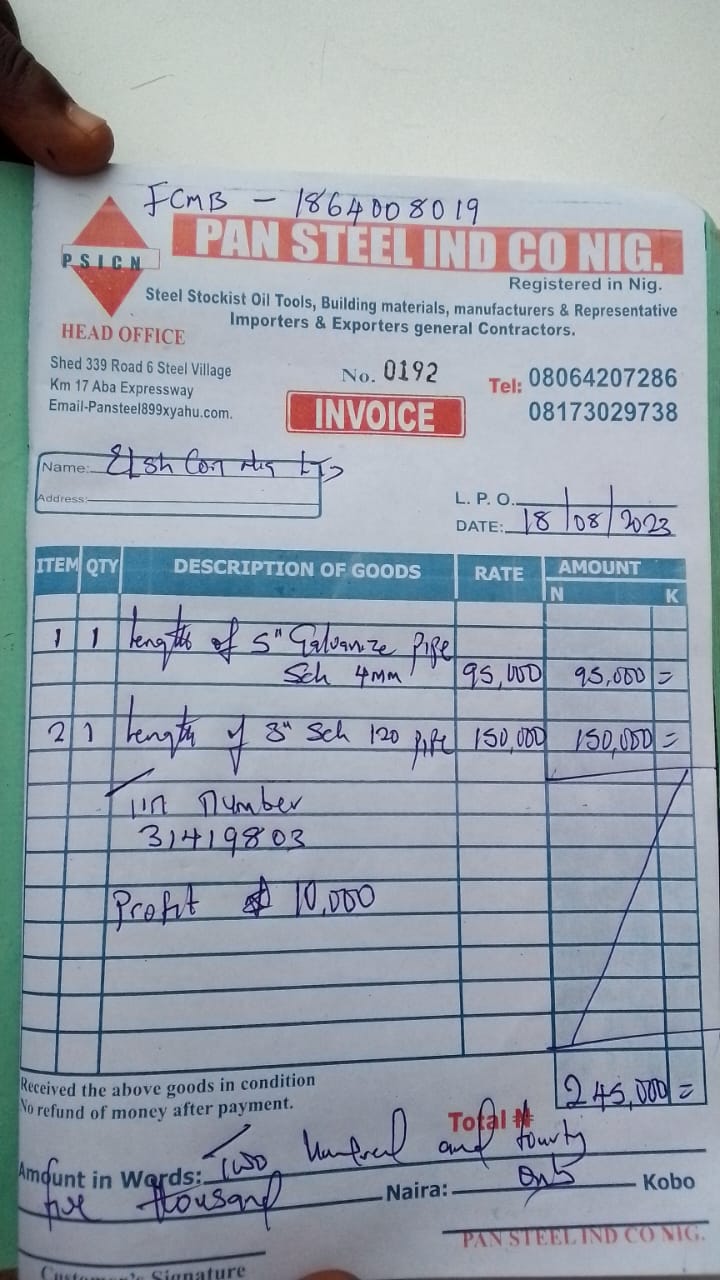 FCMB - 1864008019
PSICN
PAN STEEL IND CO NIG.
Registered in Nig.
Steel Stockist Oil Tools, Building materials, manufacturers & Representative
Importers & Exporters general Contractors.
HEAD OFFICE
Shed 339 Road 6 Steel Village
Km 17 Aba Expressway
Email-Pansteel899xyahu.com.
No. 0192
INVOICE
Tel: 08064207286
08173029738
Name: Con Nig LTD
Address:
L. P. O.
DATE: 18/08/2023
ITEM QTY DESCRIPTION OF GOODS RATE AMOUNT
N K
1 1 Lengths of 5" Galvanize Pipe
Sch 4mm 95,000 95,000 =
2 1 Length of 3" Sch 120 pipe 150,000 150,000 =
Tin Number
31419803
Profit 10,000
Received the above goods in condition
No refund of money after payment.
245,000 =
Total ₦
Amount in Words: Two Hundred and fourty
five thousand Naira: Only Kobo
PAN STEEL IND CO NIG.
Customer's Signature